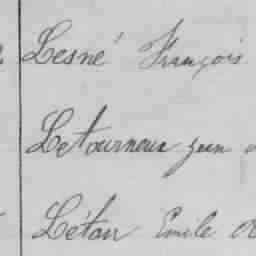 Lesné François
Letourneur
Létari Emile